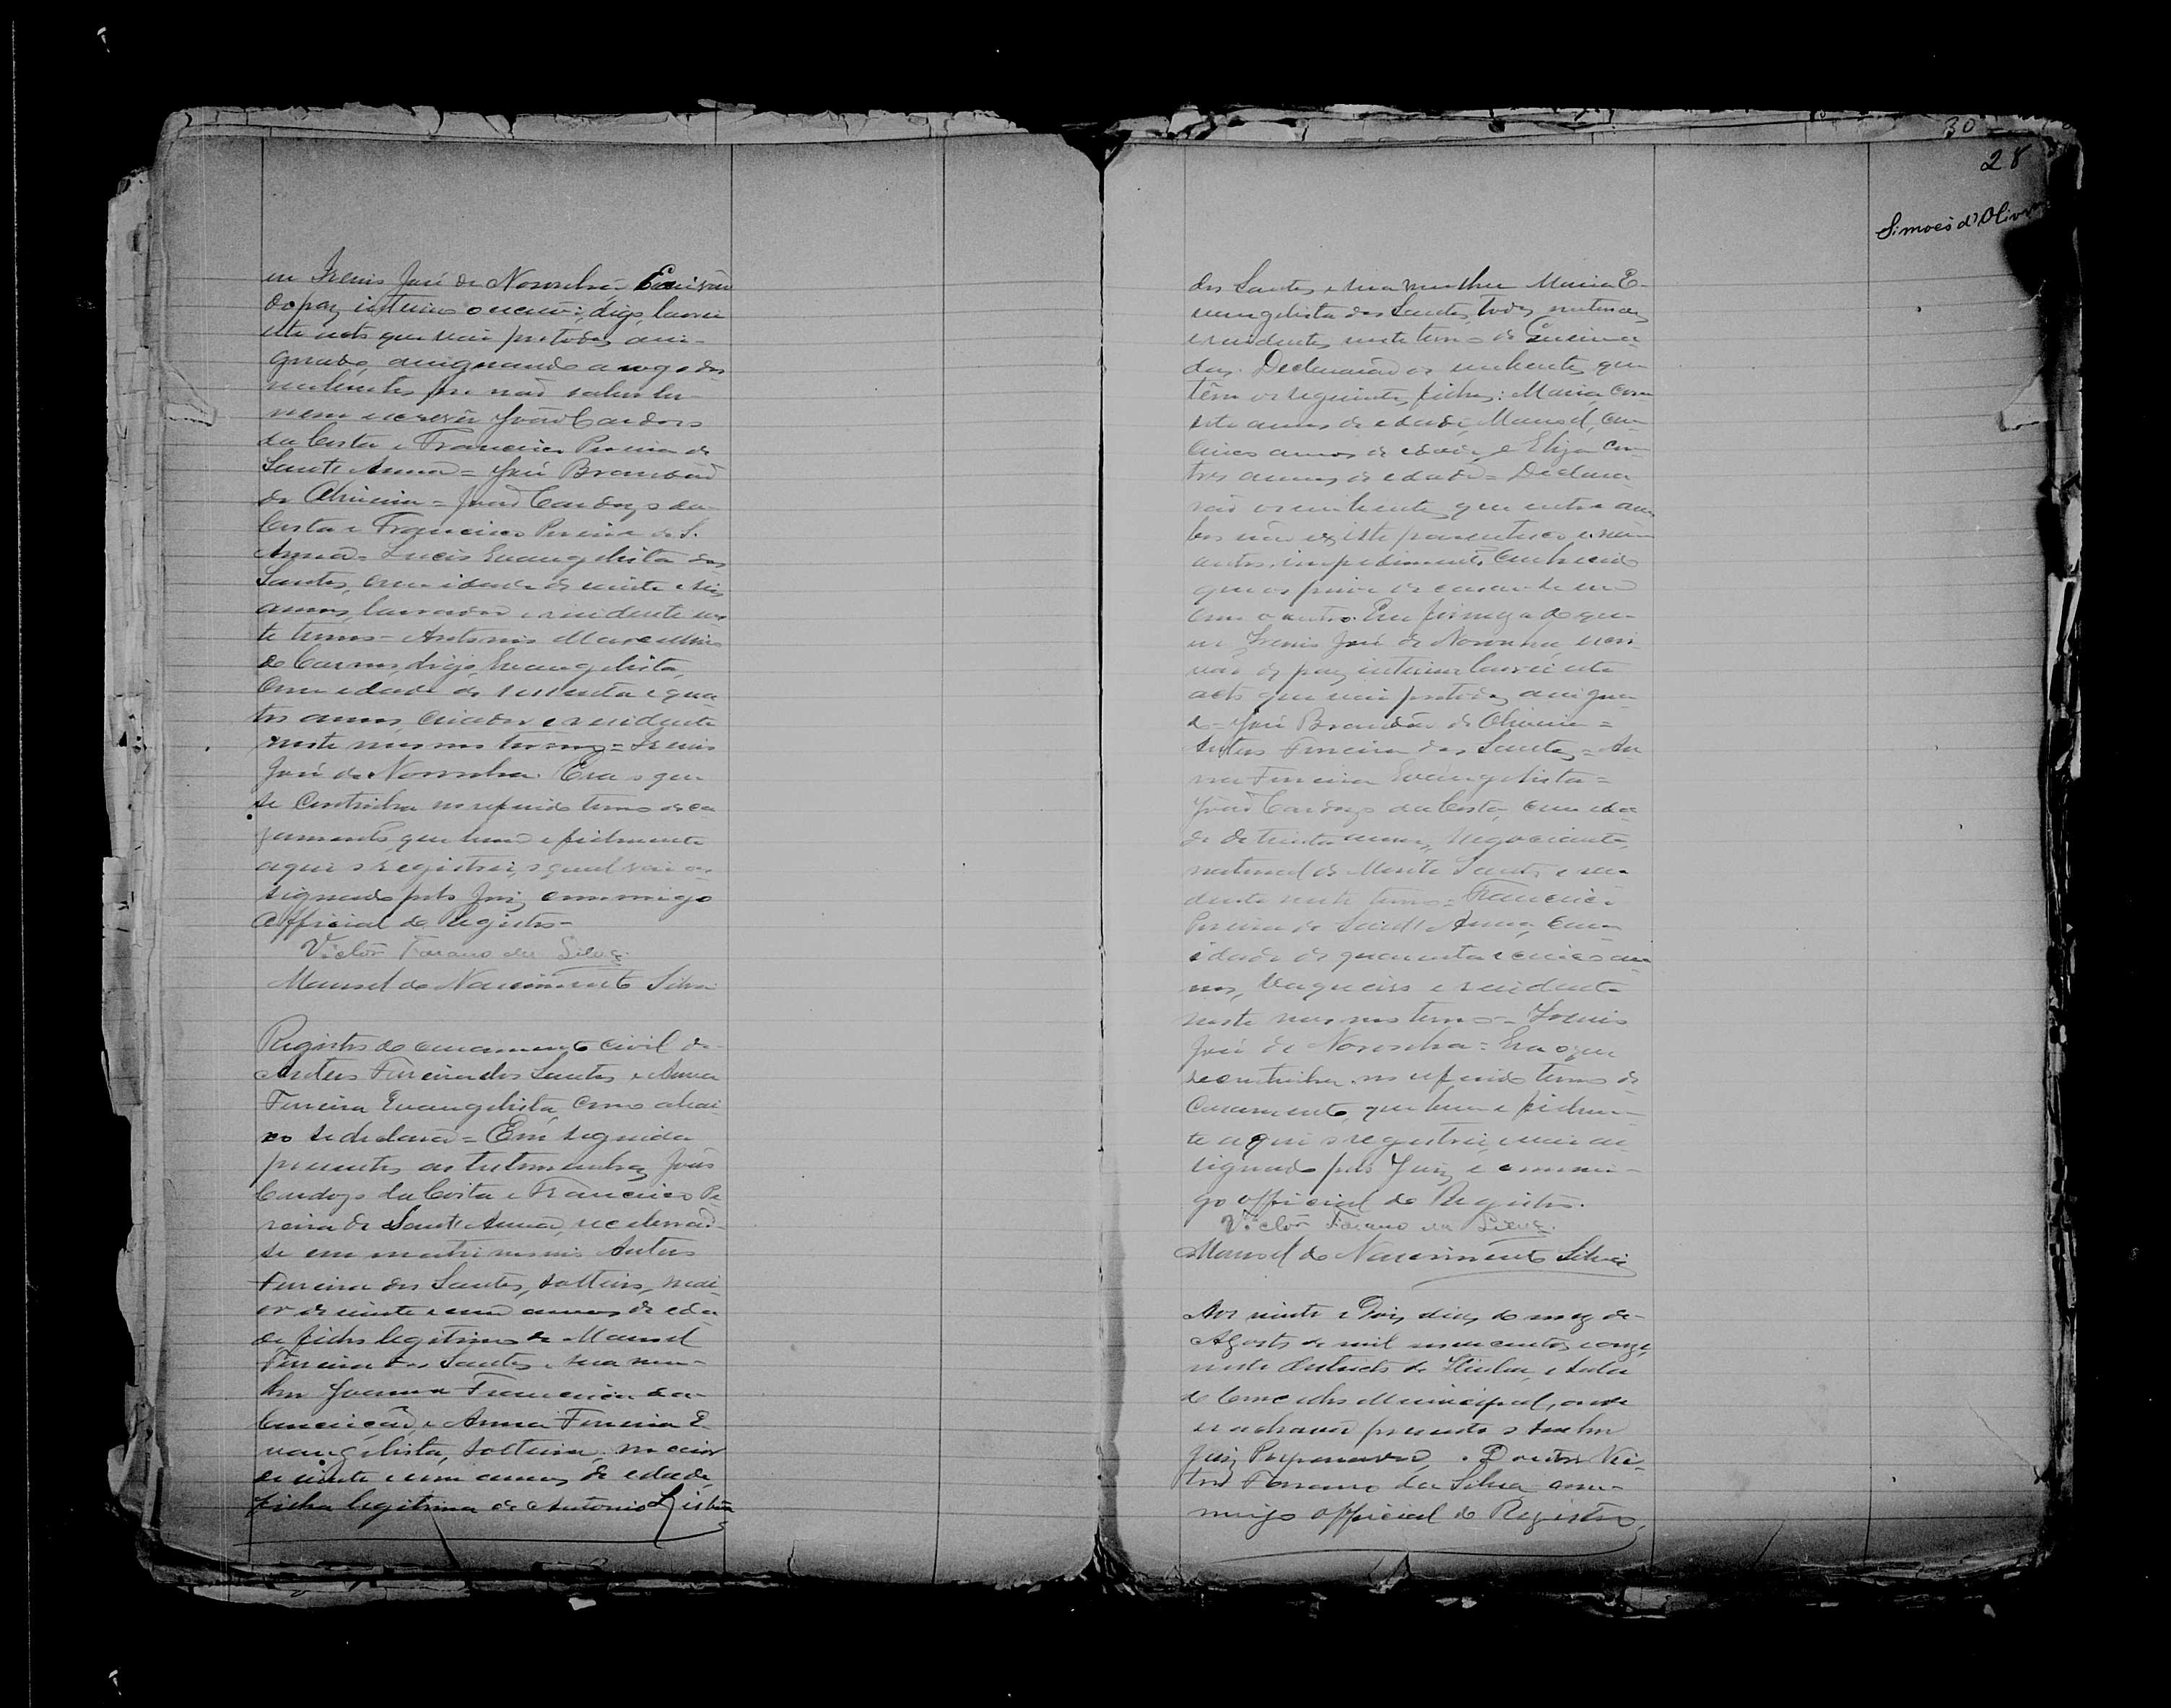 eu Irenio José de Noronha = Escrivão
do paz interino o escrevi; digo, lavrei
este acto que vai por todos assi-
gnado, assignando a rogo dos
nubentes por não saber ler
nem escrever João Cardoso
da Costa e Francisco Pereira de
Sant'Anna = José Brandão
de Oliveira = João Cardozo da
Costa e Francisco Pereira de S.
Anna = Lucio Evangelista dos
Santos, com idade de vinte e seis
annos, lavrador e residente nes-
te termo = Antonio Marcellino
do Carmo, digo, Evangelista,
com edade de sessenta e qua-
tro annos, criador e residente
neste mesmo termo = Irenio
José de Noronha. Era o que
se continha no referido termo de ca
samento, que bem e fielmente
aqui o registrei, o qual vai as-
signado pelo Juiz commigo
Official de Registro =
Victor Farano da Silva.
Manoel do Nascimento Silva
Registro do casamento civil de
Anteus Ferreira dos Santos e Anna
Ferreira Evangelista, como abai-
xo se declara = Em seguida
presentes as testemunhas João
Cardozo da Costa e Francisco Pe
reira de Sant'Anna, receberão-
se em matrimonio Anteus
Ferreira dos Santos, solteiro, mai-
or de vinte e um annos de eda
de, filho legitimo de Manoel
Ferreira dos Santos e sua mu-
lher Joanna Francisca da
Conceição, e Anna Ferreira E-
vangelista, solteira, maior
de vinte e um annos de edade,
filha legitima de Antonio
28
30
Simões d'Oliv
dos Santos e sua mulher Maria E-
vangelista dos Santos, todos naturaes
e residentes neste termo de
Declararão os nubentes que
têm os seguintes filhos: Maria, com
sete annos de edade, Manoel, com
cinco annos de edade, e Eliza com
tres annos de edade = Declara
rão os nubentes que entre am
bos não existe parentesco e nem
outro impedimento conhecido
que os prive de casar-se um
com o outro. Em firmeza do que
eu Irenio José de Noronha, escri-
vão de paz interino lavrei este
acto que vai por todos assigna-
do = José Brandão de Oliveira =
Anteus Ferreira dos Santos = An
na Ferreira Evangelista =
João Cardozo da Costa, com eda
de de trinta annos, negociante,
natural de Monte Santo e resi-
dente neste termo = Francisco
Pereira de Sant'Anna, com
idade de quarenta e cinco an
nos, vaqueiro e residente
neste mesmo termo = Irenio
José de Noronha = Era o que
se continha no referido termo de
casamento, que bem e fielmen-
te aqui o registrei, e vai as-
signado pelo Juiz e commi-
go official do Registro.
Victor Farano da Silva.
Manoel do Nascimento Silva
Aos vinte e dois dias do mez de
Agosto de mil novecentos e onze,
neste districto de e sala
do Concelho Municipal, onde
se achava presente o senhor
Juiz Preparador, Doutor Vic-
tor Farano da Silva com-
migo official do Registro,